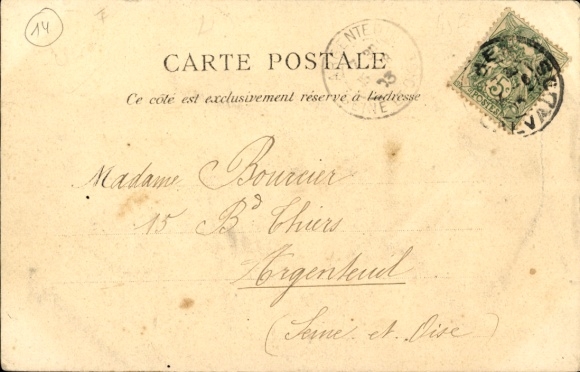 14
CARTE POSTALE
Ce côté est exclusivement réservé à l'adresse
Madame Bourcier
15 Bd Thiers
Argenteuil
(Seine et Oise)